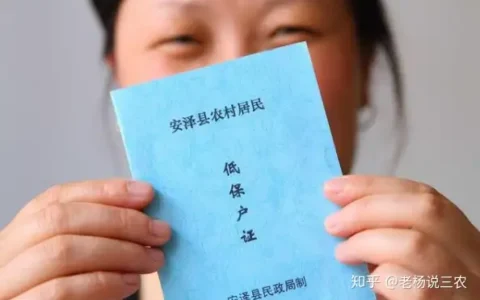 安泽县农村居民
低保户证
安泽县民政局制
知乎 @老杨说三农